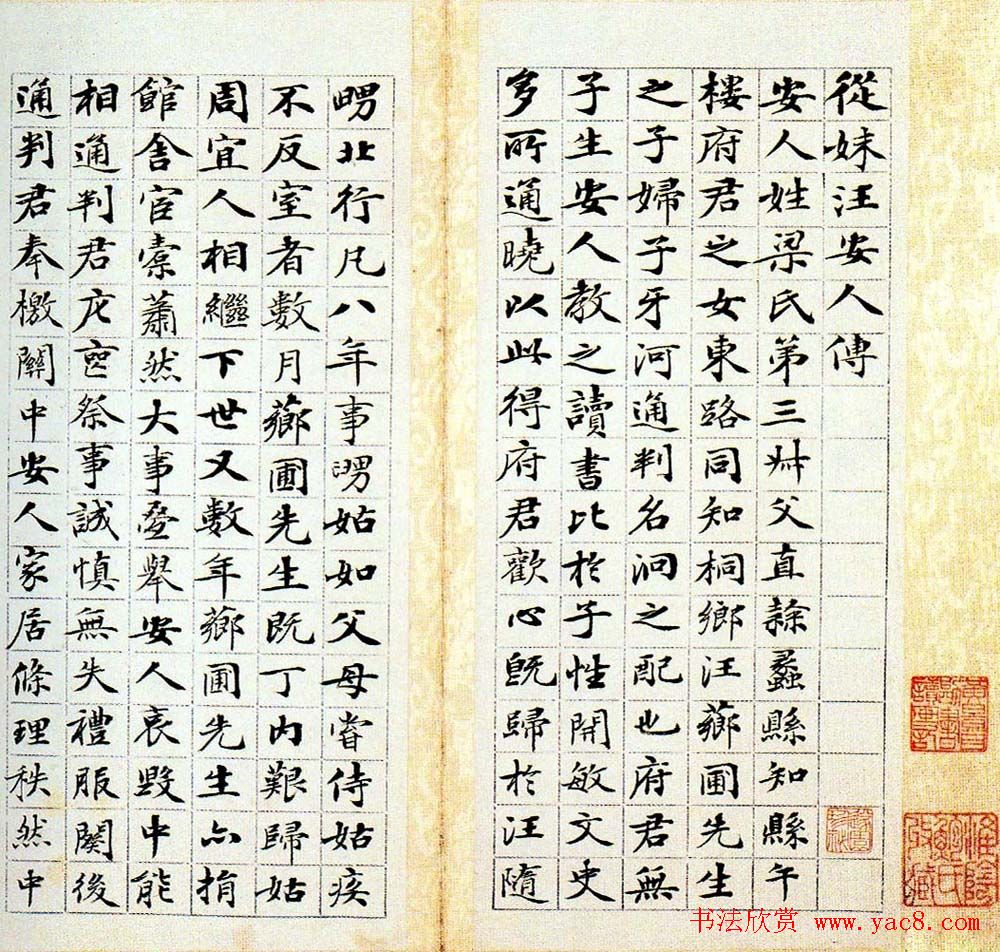 從妹汪安人傳
安人姓梁氏第三卅父直隸蠡縣知縣午
樓府君之女東路同知桐鄉汪薌圃先生
之子婦子牙河通判名泂之配也府君無
子生安人教之讀書比於子性開敏文史
多所通曉以此得府君歡心既歸於汪隨
甥北行凡八年事甥姑如父母嘗侍姑疾
不反室者數月薌圃先生既丁內艱歸姑
周宜人相繼下世又數年薌圃先生亦捐
館舍宦橐蕭然大事疊舉安人哀毀中能
相通判君庀喪祭事誠慎無失禮服闋後
通判君奉檄關中安人家居條理秩然中
书法欣赏 www.yac8.com